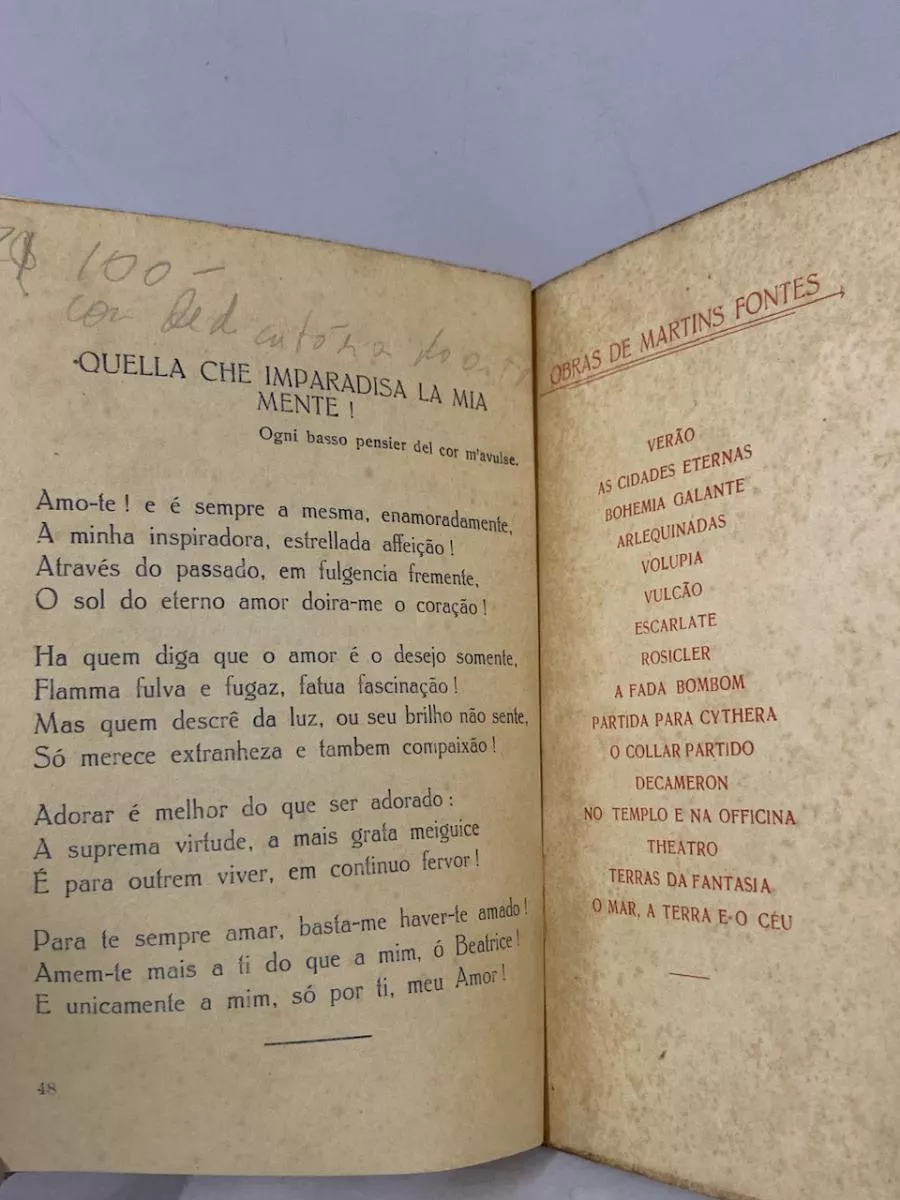 100-
com Ded
catória do
QUELLA CHE IMPARADISA LA MIA
MENTE !
Ogni basso pensier del cor m'avulse.
Amo-te ! e é sempre a mesma, enamoradamente,
A minha inspiradora, estrellada affeição !
Através do passado, em fulgencia fremente,
O sol do eterno amor doira-me o coração !
Ha quem diga que o amor é o desejo somente,
Flamma fulva e fugaz, fatua fascinação !
Mas quem descrê da luz, ou seu brilho não sente,
Só merece extranheza e tambem compaixão !
Adorar é melhor do que ser adorado :
A suprema virtude, a mais grata meiguice
É para outrem viver, em continuo fervor !
Para te sempre amar, basta-me haver-te amado !
Amem-te mais a ti do que a mim, ó Beatrice !
E unicamente a mim, só por ti, meu Amor !
48
OBRAS DE MARTINS FONTES
VERÃO
AS CIDADES ETERNAS
BOHEMIA GALANTE
ARLEQUINADAS
VOLUPIA
VULCÃO
ESCARLATE
ROSICLER
A FADA BOMBOM
PARTIDA PARA CYTHERA
O COLLAR PARTIDO
DECAMERON
NO TEMPLO E NA OFFICINA
THEATRO
TERRAS DA FANTASIA
O MAR, A TERRA E O CÉU